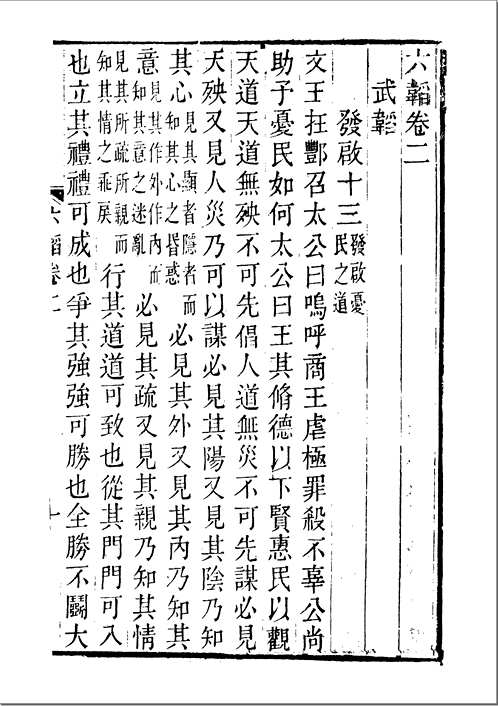 六韜卷二
武韜
發啟十三發啟憂民之道
文王在酆召太公曰嗚呼商王虐極罪殺不辜公尚
助予憂民如何太公曰王其脩德以下賢惠民以觀
天道天道無殃不可先倡人道無災不可先謀必見
天殃又見人災乃可以謀必見其陽又見其陰乃知
其心見其顯者隱者而知其心之昏惑必見其外又見其內乃知其
意見其作外作內而知其意之迷亂必見其疏又見其親乃知其情
見其所疏所親而知其情之乖戾行其道道可致也從其門門可入
也立其禮禮可成也爭其強強可勝也全勝不鬭大
六韜卷二
十